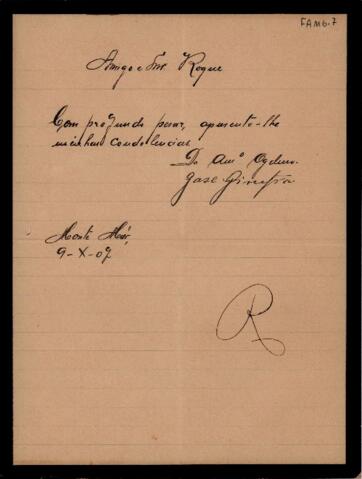 FAMb.7
Amigo e Snr. Roque
Com profundo pezar, apresento-lhe
minhas condolencias
Do Amº
José
Monte Mór,
9-X-07
R